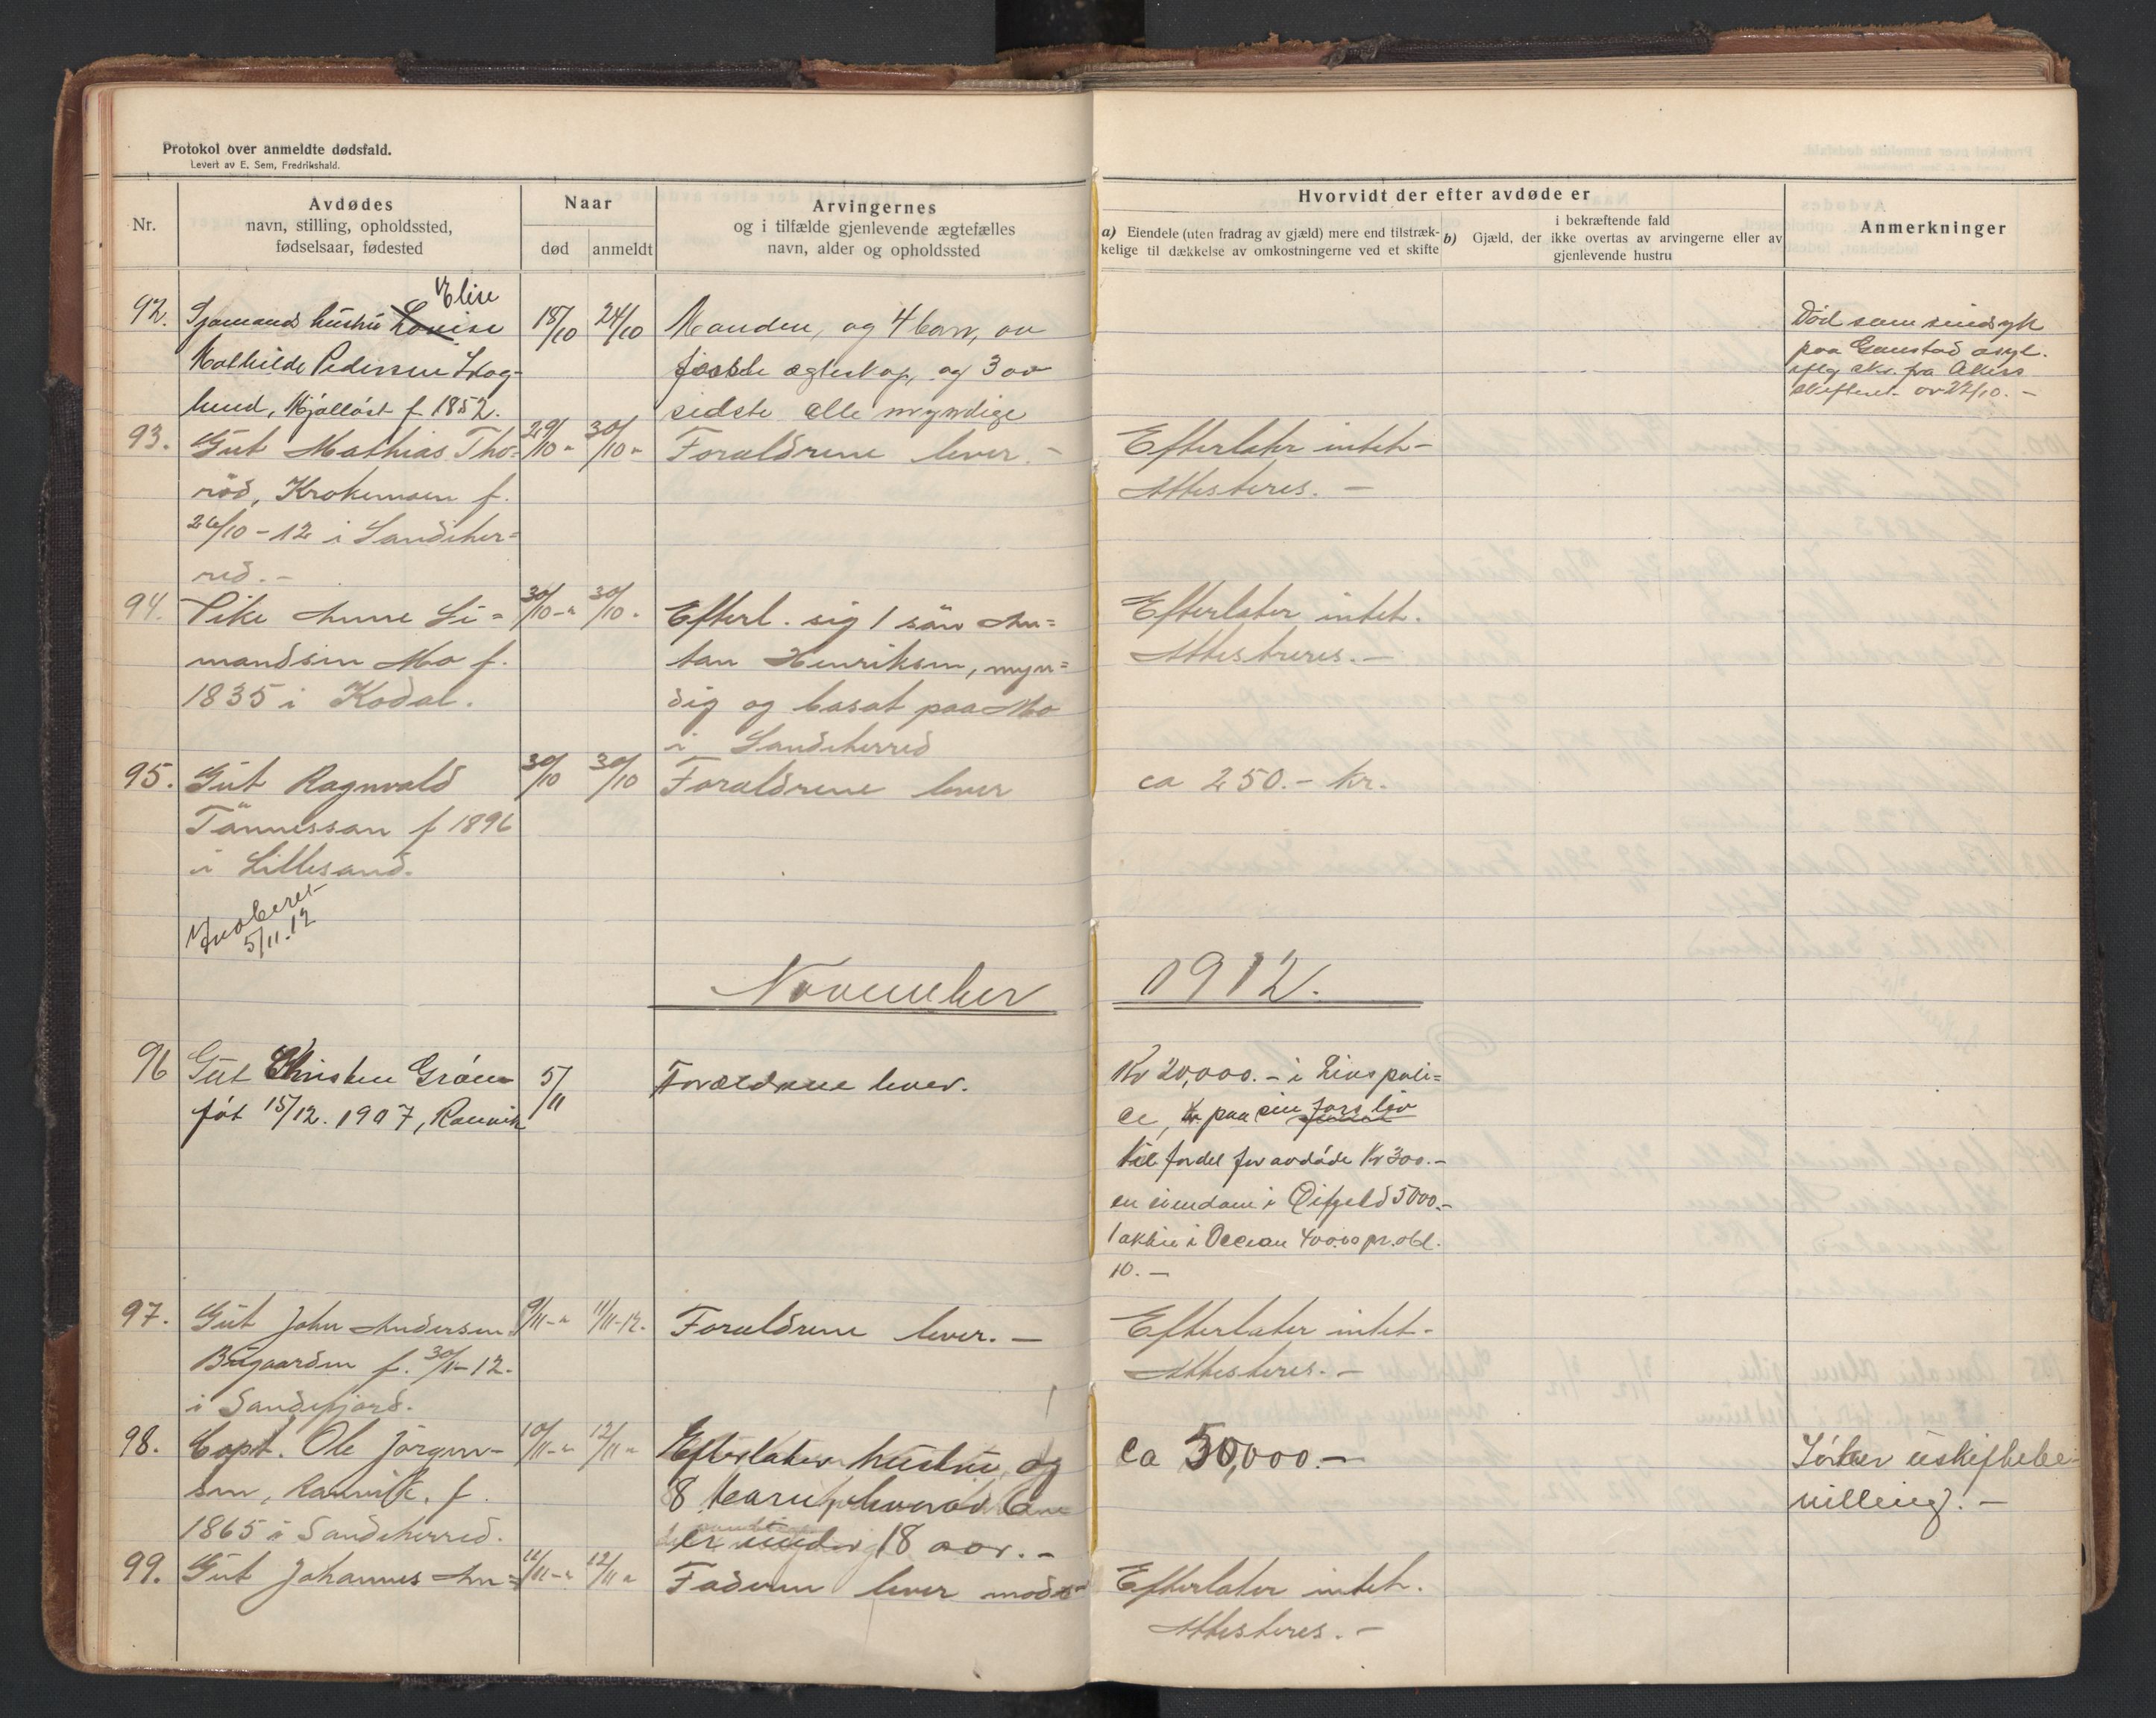 Protokol over anmeldte dødsfald.
Levert av E. Sem, Fredrikshald.
Nr.
Avdødes
navn, stilling, opholdssted,
fødselsaar, fødested
Naar
død
anmeldt
Arvingernes
og i tilfælde gjenlevende ægtefælles
navn, alder og opholdssted
Hvorvidt der efter avdøde er
a) Eiendele (uten fradrag av gjæld) mere end tilstræk-
kelige til dækkelse av omkostningerne ved et skifte
b) i bekræftende fald
Gjæld, der ikke overtas av arvingerne eller av
gjenlevende hustru
Anmerkninger
92.
Elise
Sjømands hustru Lovise
Mathilde Pedersen Skog-
lund, Mjølløst f 1852.
18/10
24/10
Manden, og 4 barn, av
første ægteskap, og 3 av
sidste alle myndige
Død som sindsyk
paa Gaustad asyl.
iflg skr. fra Akers
skifteret av 22/10. -
93.
Gut Mathias Tho=
rød, Krokemoen f.
26/10 - 12 i Sandeher=
red. -
29/10 "
30/10 "
Forældrene lever. -
Efterlater intet -
Attesteres. -
94.
Pike Anne Si=
mandsen Mo f.
1835 i Kodal.
30/10 - "
30/10 "
Efterl. sig 1 søn An=
tan Henriksen, myn=
dig og bosat paa Mo
i Sandeherred
Efterlater intet.
Attesteres. -
95.
Gut Ragnvald
Tønnessen f 1896
i Lillesand.
30/10
30/10
Forældrene lever
ca 250. - kr.
Indberet
5/11. 12
November 1912.
96
Gut Christen Grøn
føt 15/12. 1907, Ranvik
5/11
Forældrene lever.
Kr 20,000. - i Livspoli=
ce, paa sin fars liv
til fordel for avdøde Kr 300. -
en eiendom i 5000. -
1 aktie i Ocean 400.00 pr. obl.
10. -
97.
Gut John Andersen
Bugaarden f. 30/11 - 12.
i Sandefjord.
9/11 - "
11/11 - 12.
Forældrene lever. -
Efterlater intet -
Attesteres. -
98.
Capt. Ole Jørgen-
sen, Ranvik, f.
1865 i Sandeherred.
10/11 - "
12/11 "
Efterlater hustru og
8 barn, hvorav 6
er under 18 aar. -
ca 50,000. -
Søker uskiftebe-
villing. -
99.
Gut Johannes An=
12/11 - "
12/11 "
Faderen lever mode-
Efterlater intet.
Attesteres. -